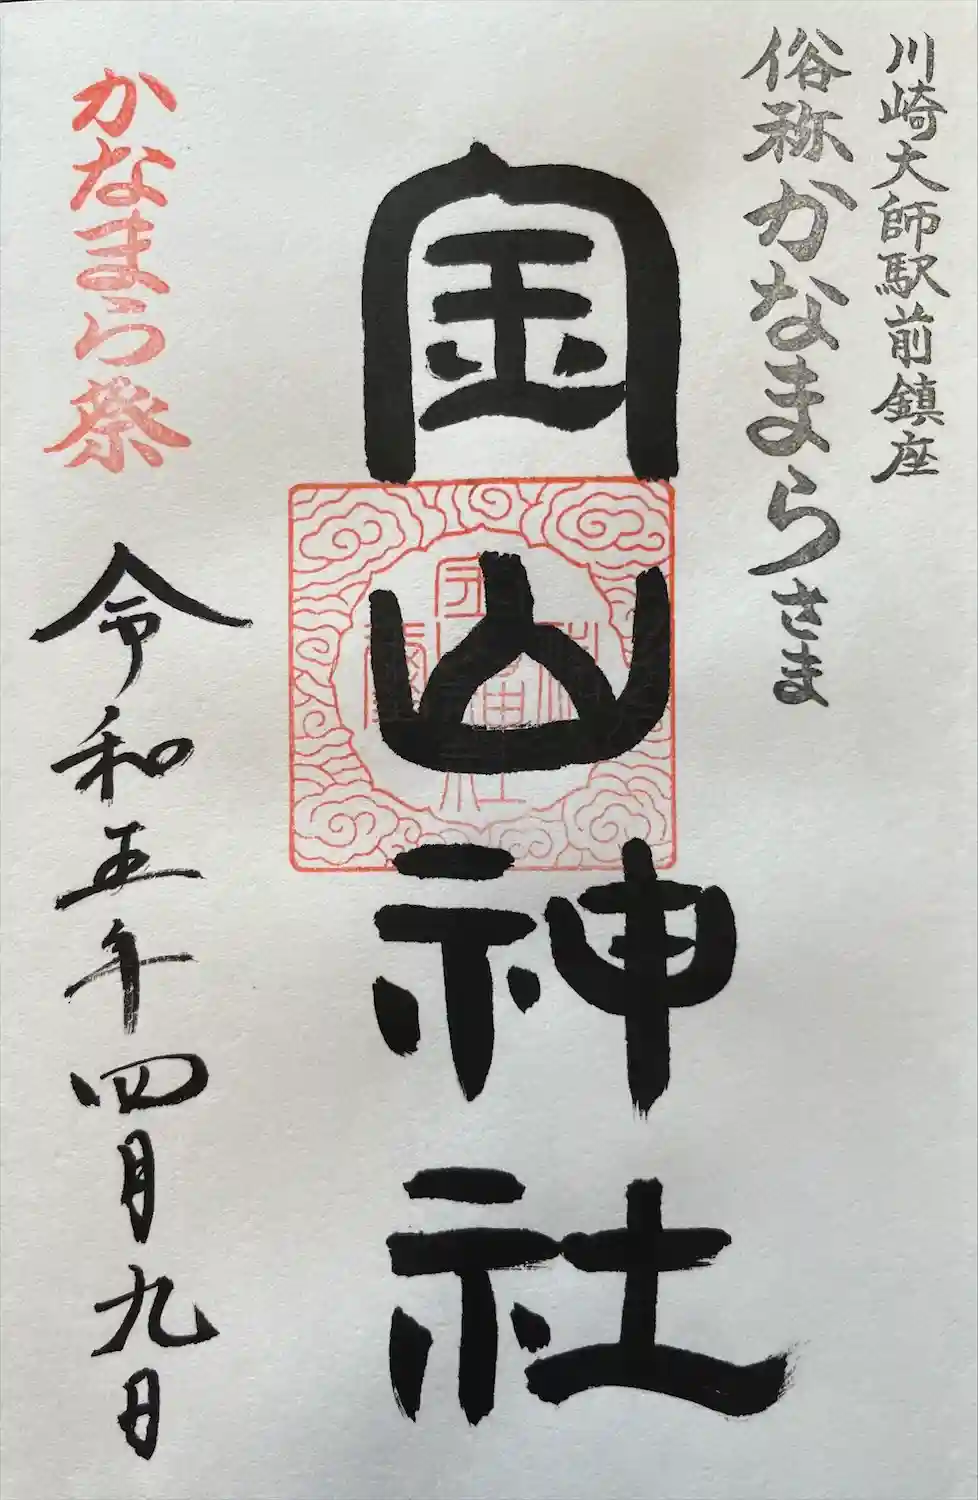 川崎大師駅前鎮座
俗称かなまらさま
金山神社
かなまら祭
令和五年四月九日